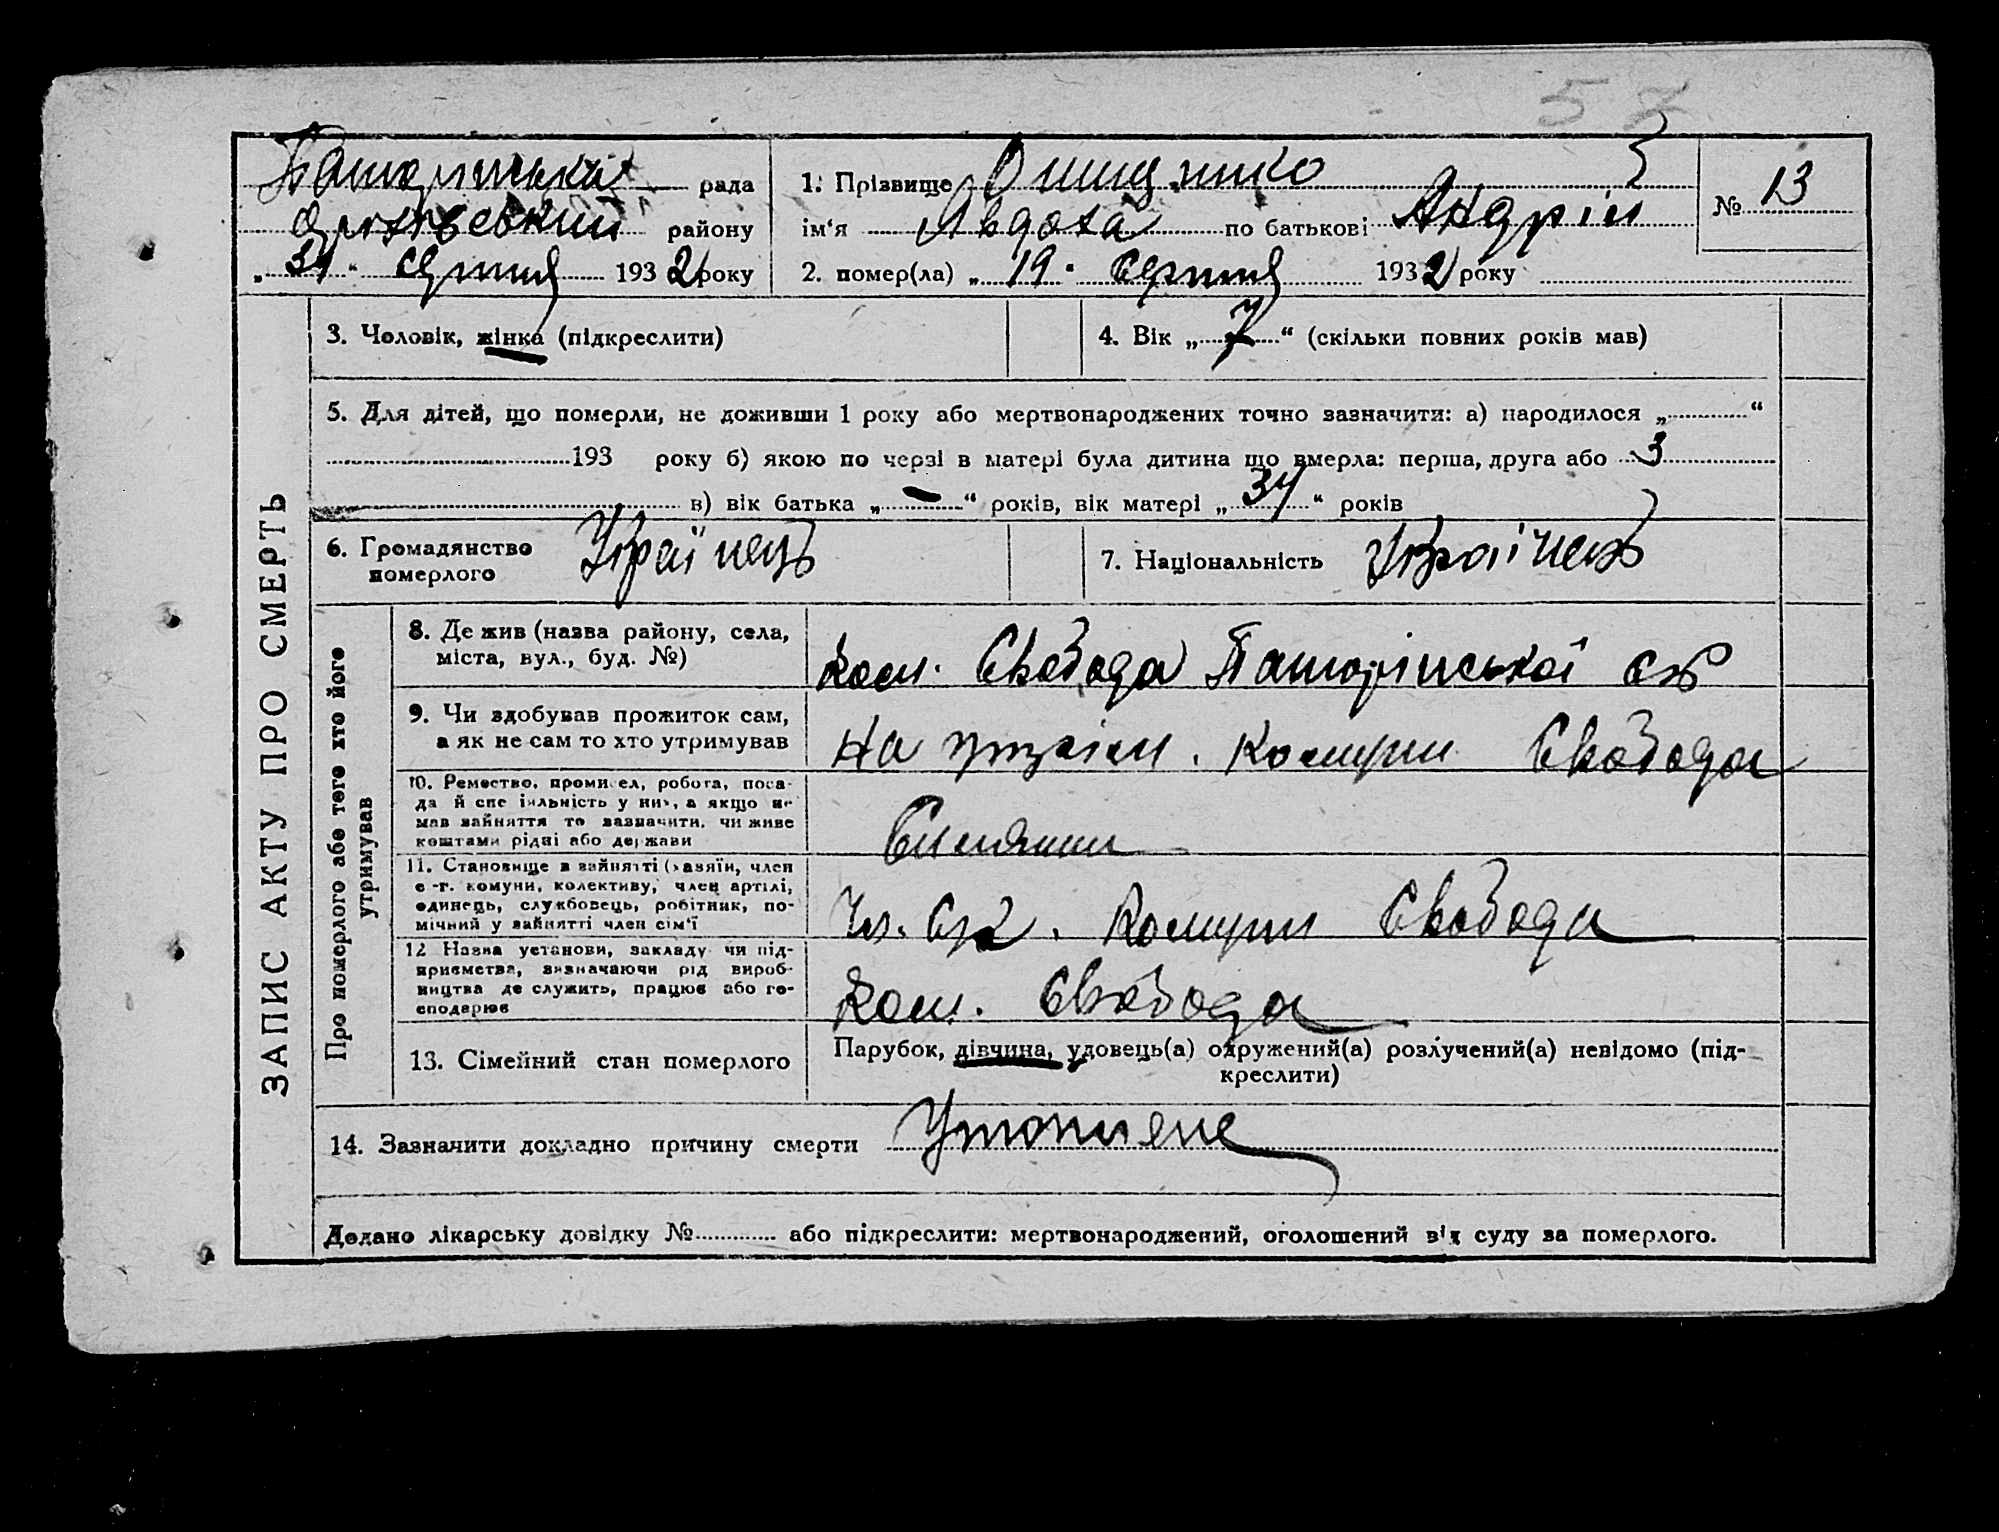 57
рада
району
„ 31 “ серпня 1932 року
1. Прізвище Онищенко
ім‘я Явдоха по батькові Андрій
2. помер(ла) „ 19 “ серпня 1932 року
№ 13
ЗАПИС АКТУ ПРО СМЕРТЬ
3. Чоловік, жінка (підкреслити)
4. Вік „ 7 “ (скільки повних років мав)
5. Для дітей, що померли, не доживши 1 року або мертвонароджених точно зазначити: а) народилося „ “
193 року б) якою по черзі в матері була дитина що вмерла: перша, друга або 3
в) вік батька „ – “ років, вік матері „ 34 “ років
6. Громадянство
померлого
Українець
7. Національність Українець
Про померлого або того хто його
утримував
8. Де жив (назва району, села,
міста, вул., буд. №)
Ком. Свобода
9. Чи здобував прожиток сам,
а як не сам то хто утримував
На Комуни Свобода
10. Ремество, промисел, робота, поса-
да й спеціяльність у них, а якщо не
мав зайняття то зазначити, чи живе
коштами рідні або держави
11. Становище в зайнятті (хазяїн, член
с.-г. комуни, колективу, член артілі,
одинець, службовець, робітник, по-
мічний у зайнятті член сім‘ї
Чл. Комуни Свобода
12 Назва установи, закладу чи під-
приємства, визначаючи рід вироб-
ництва де служить, працює або го-
сподарює
Ком. Свобода
13. Сімейний стан померлого
Парубок, дівчина, удовець(а) одружений(а) розлучений(а) невідомо (під-
креслити)
14. Зазначити докладно причину смерти Утоплене
Додано лікарську довідку № або підкреслити: мертвонароджений, оголошений від суду за померлого.